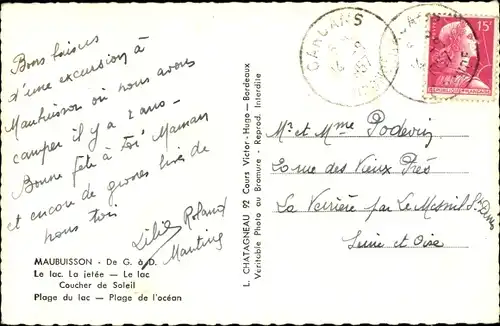 Bons baisers
d'une excursion à
Maubuisson où nous avons
camper il y a 2 ans -
Bonne fête à toi Maman
et encore de grosses bises de
nous tous
Roland
MAUBUISSON - De G. à D.
Le lac. La jetée — Le lac
Coucher de Soleil
Plage du lac — Plage de l'océan
L. CHATAGNEAU 92 Cours Victor-Hugo — Bordeaux
Véritable Photo au Bromure - Reprod. Interdite
CARCANS
15F
REPUBLIQUE FRANÇAISE
Mr et Mme Podevin
20 rue des Vieux Prés
La Verrière par Le Mesnil St Denis
Seine et Oise